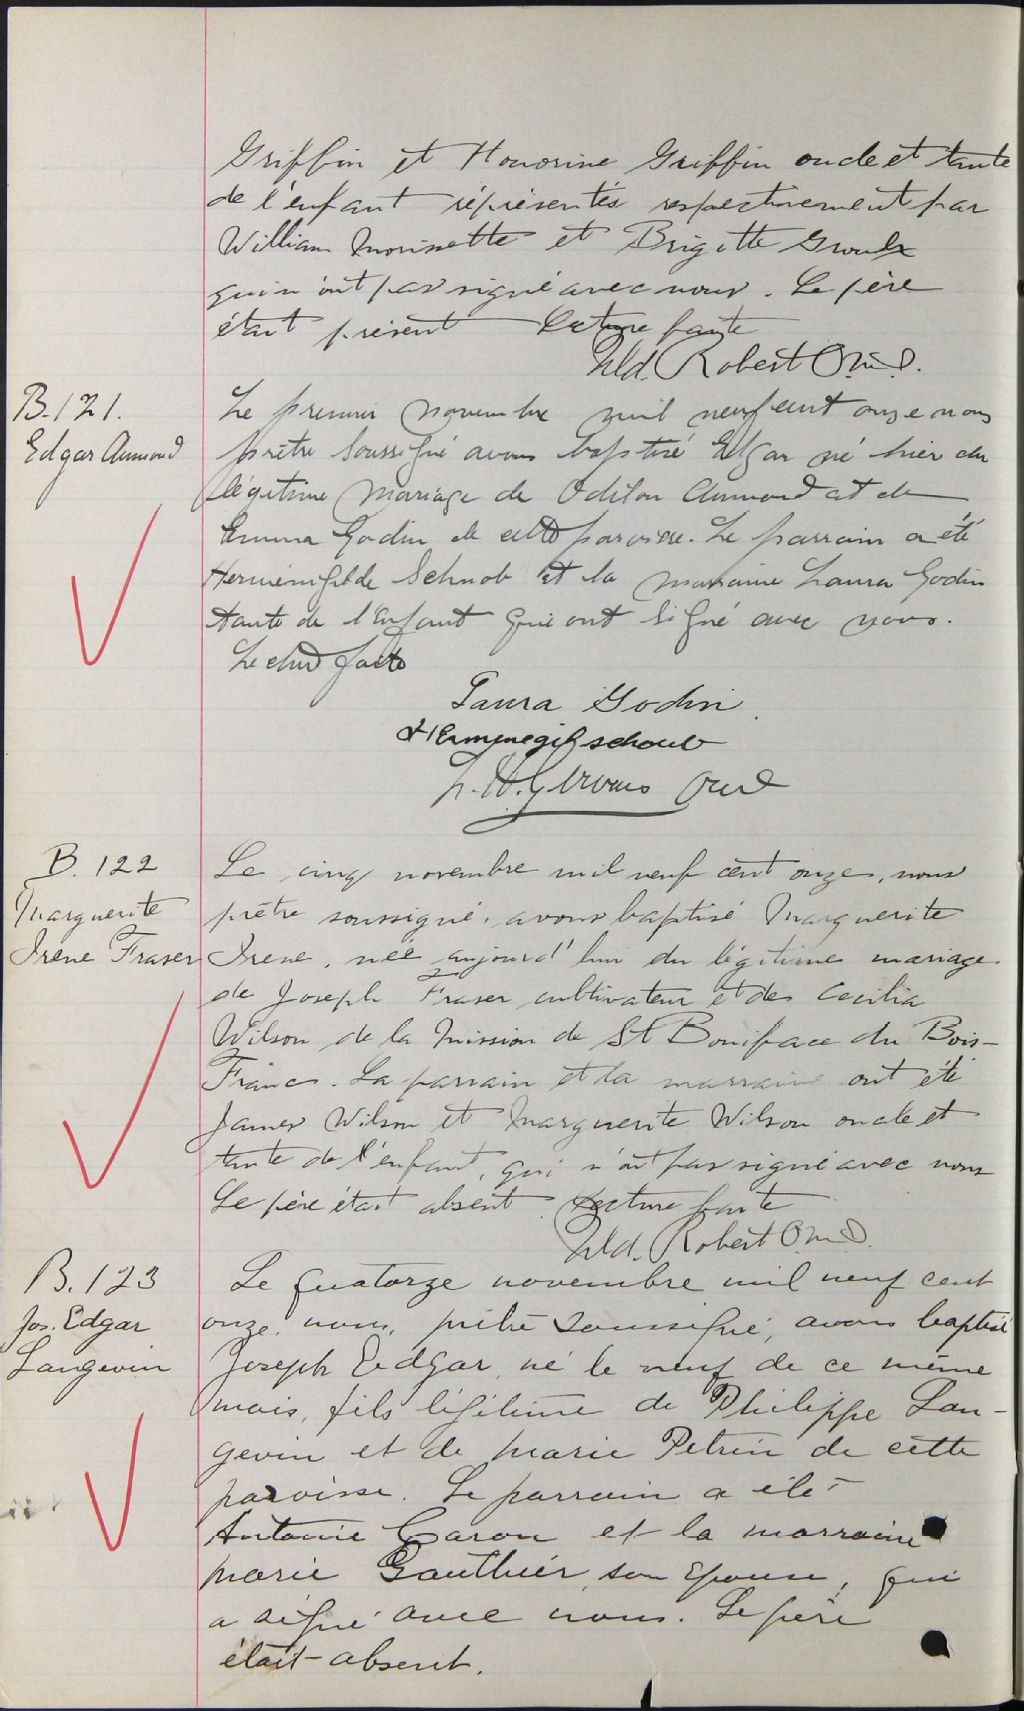 Griffin et Honorine Griffin oncle et tante
de l'enfant réprésentés respectivement par
William Morissette et Brigitte Groulx
qui n'ont pas signé avec nous. Le père
étant présent Lecture faite
Uld. Robert O.M.I.
B. 121.
Edgar Aumond
Le premier novembre mil neuf cent onze nous
prêtre soussigné avons baptisé Edgar né hier du
légitime mariage de Odilon Aumond et de
Emma Godin de cette paroisse. Le parrain a été
Herménégilde Schnob et la marraine Laura Godin
tante de l'enfant qui ont signé avec nous.
Lecture faite
Laura Godin
Hermenegil schoub
Gervais Omi
B. 122
Marguerite
Irene Fraser
Le cinq novembre mil neuf cent onze, nous
prêtre soussigné, avons baptisé Marguerite
Irene, née aujourd'hui du légitime mariage
de Joseph Fraser cultivateur et de Cecilia
Wilson de la Mission de St Boniface du Bois-
Franc. La parrain et la marraine ont été
James Wilson et Marguerite Wilson oncle et
tante de l'enfant, qui n'ont pas signé avec nous
Le père était absent. Lecture faite
Uld. Robert O.M.I.
B. 123
Jos. Edgar
Langevin
Le quatorze novembre mil neuf cent
onze, nous, prêtre soussigné, avons baptisé
Joseph Edgar, né le neuf de ce même
mois, fils légitime de Philippe Lan-
gevin et de marie Petrin de cette
paroisse. Le parrain a été
Antonie Caron et la marraine
marie Gauthier son epouse, qui
a signé avec nous. Le père
était absent.